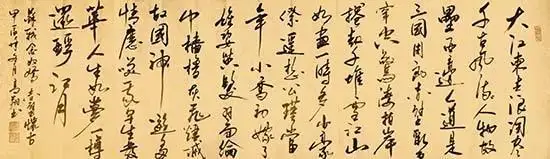 大江東去浪淘盡
千古風流人物故
壘西邊人道是
三國周郎赤壁亂石
穿空驚濤拍岸
捲起千堆雪江山
如畫一時多少豪
傑遙想公瑾當
年小喬初嫁了
雄姿英發羽扇綸
巾檣櫓灰飛煙滅
故國神遊多
情應笑我早生髮
華人生如夢一樽
還酹江月
蘇軾念奴嬌赤壁懷古